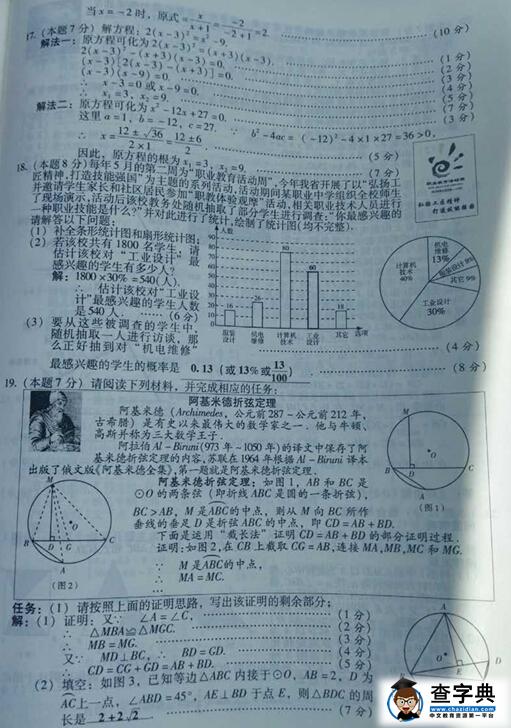 当x=-2时，原式= x/(x+1) = -2/(-2+1) =2. (10分)
17.(本题7分)解方程：2(x-3)²=x²-9.
解法一：原方程可化为2(x-3)²=(x+3)(x-3).
2(x-3)²-(x+3)(x-3)=0. (1分)
(x-3)[2(x-3)-(x+3)]=0. (2分)
(x-3)(x-9)=0. (3分)
∴ x-3=0或x-9=0. (4分)
∴ x₁=3, x₂=9. (5分)
解法二：原方程可化为x²-12x+27=0. (7分)
这里a=1, b=-12, c=27. ∵ b²-4ac=(-12)²-4×1×27=36>0, (3分)
∴ x= (12±√36)/2 = (12±6)/2. (5分)
因此，原方程的根为x₁=3, x₂=9. (7分)
18.(本题8分)每年5月的第二周为“职业教育活动周”，今年我省开展了以“弘扬工
匠精神，打造技能强国”为主题的系列活动，活动期间某职业中学组织全校师生
并邀请学生家长和社区居民参加“职教体验观摩”活动，相关职业技术人员进行
了现场演示，活动后该校教务处随机抽取了部分学生进行调查：“你最感兴趣的
一种职业技能是什么？”并对此进行了统计，绘制了统计图(均不完整).
请解答以下问题：
(1) 补全条形统计图和扇形统计图；
(2) 若该校共有1800名学生，请
估计该校对“工业设计”最
感兴趣的学生有多少人？
解：1800×30%=540(人).
∴ 估计该校对“工业设
计”最感兴趣的学生人数
是540人. (6分)
(3) 要从这些被调查的学生中，
随机抽取一人进行访谈，那
么正好抽到对“机电维修”
最感兴趣的学生的概率是 0.13(或13%或13/100) (8分)
人数
80
60
26
16
18
服装设计
机电维修
计算机技术
工业设计
其它
选项
机电维修 13%
服装设计 8%
其它 9%
工业设计 30%
计算机技术 40%
(4分)
弘扬工匠精神
打造技能强国
19.(本题7分)请阅读下列材料，并完成相应的任务：
阿基米德折弦定理
阿基米德(Archimedes，公元前287~公元前212年，
古希腊)是有史以来最伟大的数学家之一．他与牛顿、
高斯并称为三大数学王子．
阿拉伯Al-Biruni(973年~1050年)的译文中保存了阿
基米德折弦定理的内容，苏联在1964年根据Al-Biruni译本
出版了俄文版《阿基米德全集》，第一题就是阿基米德折弦定理．
阿基米德折弦定理：如图1，AB和BC是
⊙O的两条弦(即折线ABC是圆的一条折弦)，
BC>AB，M是ABC的中点，则从M向BC所作
垂线的垂足D是折弦ABC的中点，即CD=AB+BD.
下面是运用“截长法”证明CD=AB+BD的部分证明过程．
证明：如图2，在CB上截取CG=AB，连接MA，MB，MC和MG.
∵ M是ABC的中点，
∴ MA=MC.
…
M
B
D
C
A
O
(图1)
M
A
B
D
G
C
O
(图2)
任务：(1) 请按照上面的证明思路，写出该证明的剩余部分；
解：(1) 证明：又∵ ∠A=∠C， (1分)
∴ △MBA≌△MGC. (2分)
∴ MB=MG. (3分)
又∵ MD⊥BC，∴ BD=GD. (4分)
∴ CD=CG+GD=AB+BD. (5分)
(2) 填空：如图3，已知等边△ABC内接于⊙O，AB=2，D为
AC上一点，∠ABD=45°，AE⊥BD于点E，则△BDC的周
长是 2+2√2 . (7分)
A
O
E
D
查字典
中文教育资源第一平台
www.chazidian.com